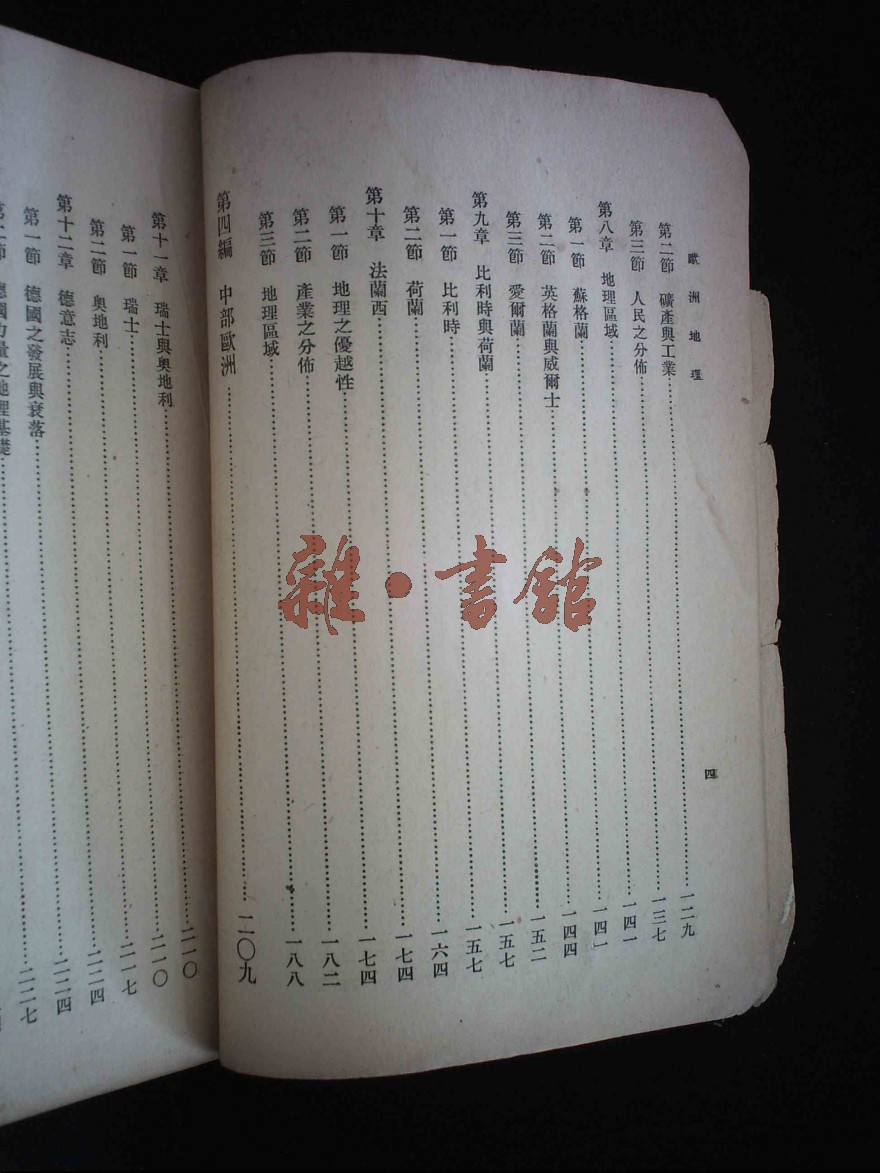 歐洲地理 四
第二節 礦產與工業……一二九
第三節 人民之分佈……一三七
第八章 地理區域……一四一
第一節 蘇格蘭……一四一
第二節 英格蘭與威爾士……一四四
第三節 愛爾蘭……一五二
第九章 比利時與荷蘭……一五七
第一節 比利時……一五七
第二節 荷蘭……一六四
第十章 法蘭西……一七四
第一節 地理之優越性……一七四
第二節 產業之分佈……一八二
第三節 地理區域……一八八
第四編 中部歐洲……二〇九
第十一章 瑞士與奧地利……二一〇
第一節 瑞士……二一〇
第二節 奧地利……二一七
第十二章 德意志……二二四
第一節 德國之發展與衰落……二二四
第二節 德國力量之地理基礎……二二七
雜·書館